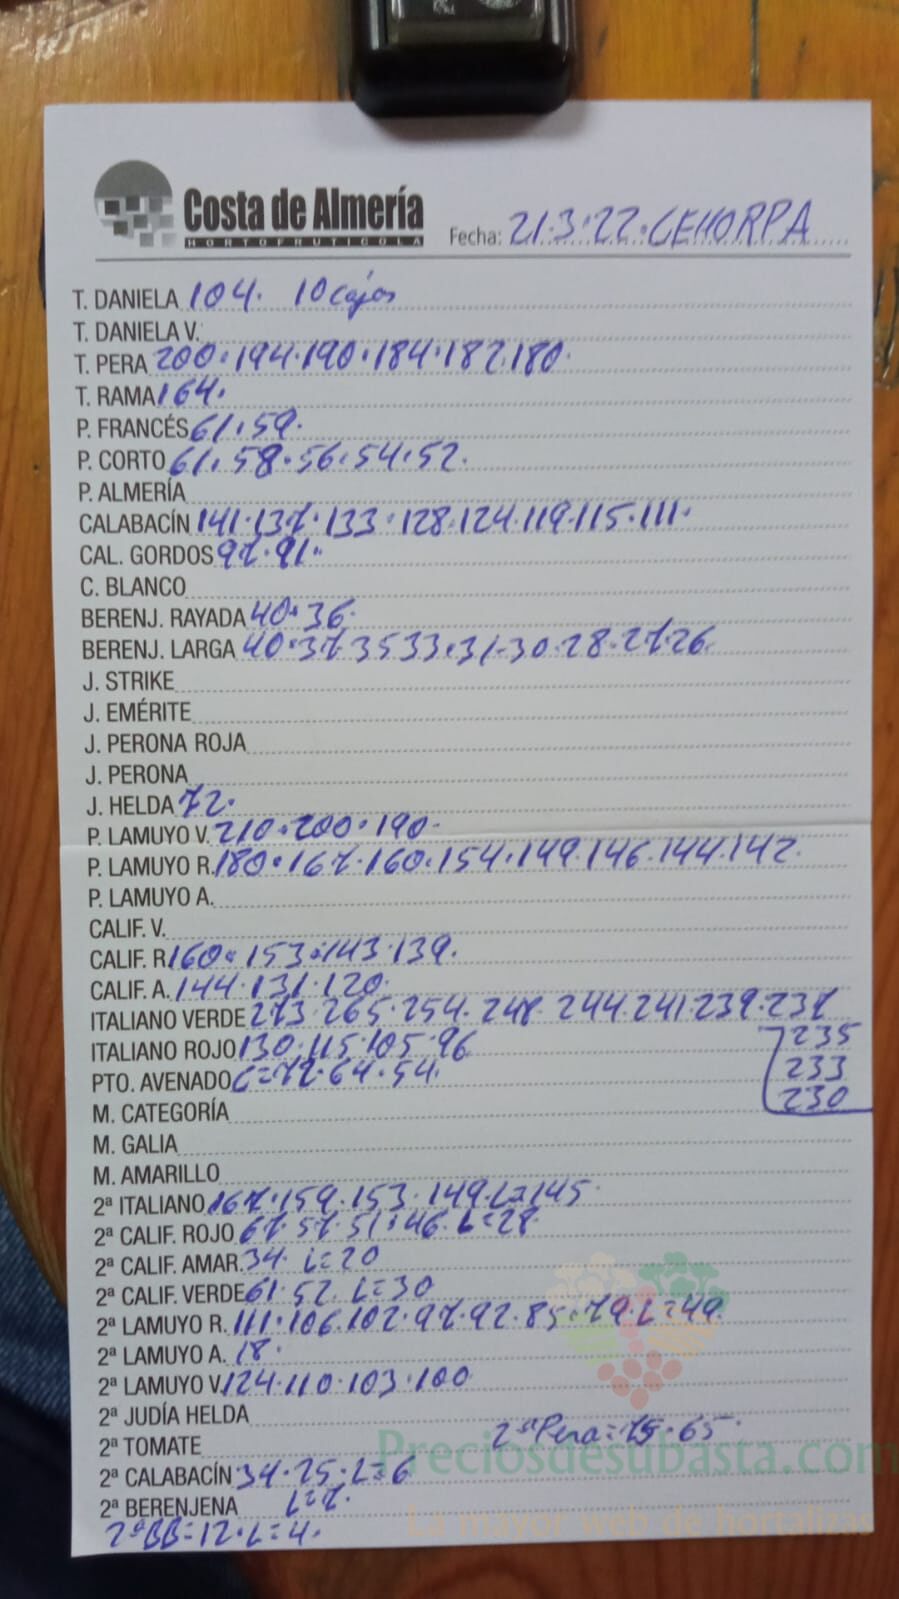 Costa de Almería
HORTOFRUTICOLA
Fecha: 21.3.22.CEHORPA
T. DANIELA 104. 10 cajas
T. DANIELA V.
T. PERA 200.194.190.184.182.180.
T. RAMA 164.
P. FRANCÉS 61.59.
P. CORTO 61.58.56.54.52.
P. ALMERÍA
CALABACÍN 141.137.133.128.124.119.115.111.
CAL. GORDOS 97.91.
C. BLANCO
BERENJ. RAYADA 40.36.
BERENJ. LARGA 40.37.35 33.31-30.28.27.26.
J. STRIKE
J. EMÉRITE
J. PERONA ROJA
J. PERONA
J. HELDA 72.
P. LAMUYO V. 210.200.190.
P. LAMUYO R. 180.167.160.154.149.146.144.142.
P. LAMUYO A.
CALIF. V.
CALIF. R 160.153.143.139.
CALIF. A. 144.131.120.
ITALIANO VERDE 273.265.254.248.244.241.239.237
235
ITALIANO ROJO 130.115.105.96
233
PTO. AVENADO L=72.64.54.
230
M. CATEGORÍA
M. GALIA
M. AMARILLO
2ª ITALIANO 167.159.153.149.L=145.
2ª CALIF. ROJO 67.57.51.46.L=28.
2ª CALIF. AMAR. 34. L=20
2ª CALIF. VERDE 61.52. L=30
2ª LAMUYO R. 111.106.102.97.92.85.79.L=49.
2ª LAMUYO A. 18.
2ª LAMUYO V. 124.110.103.100
2ª JUDÍA HELDA
2ª TOMATE 2ªPera=75.65.
Preciosdesubasta.com
2ª CALABACÍN 34.25.L=6
2ª BERENJENA L=7.
La mayor web de hortalizas
2ªBB=12.L=4.